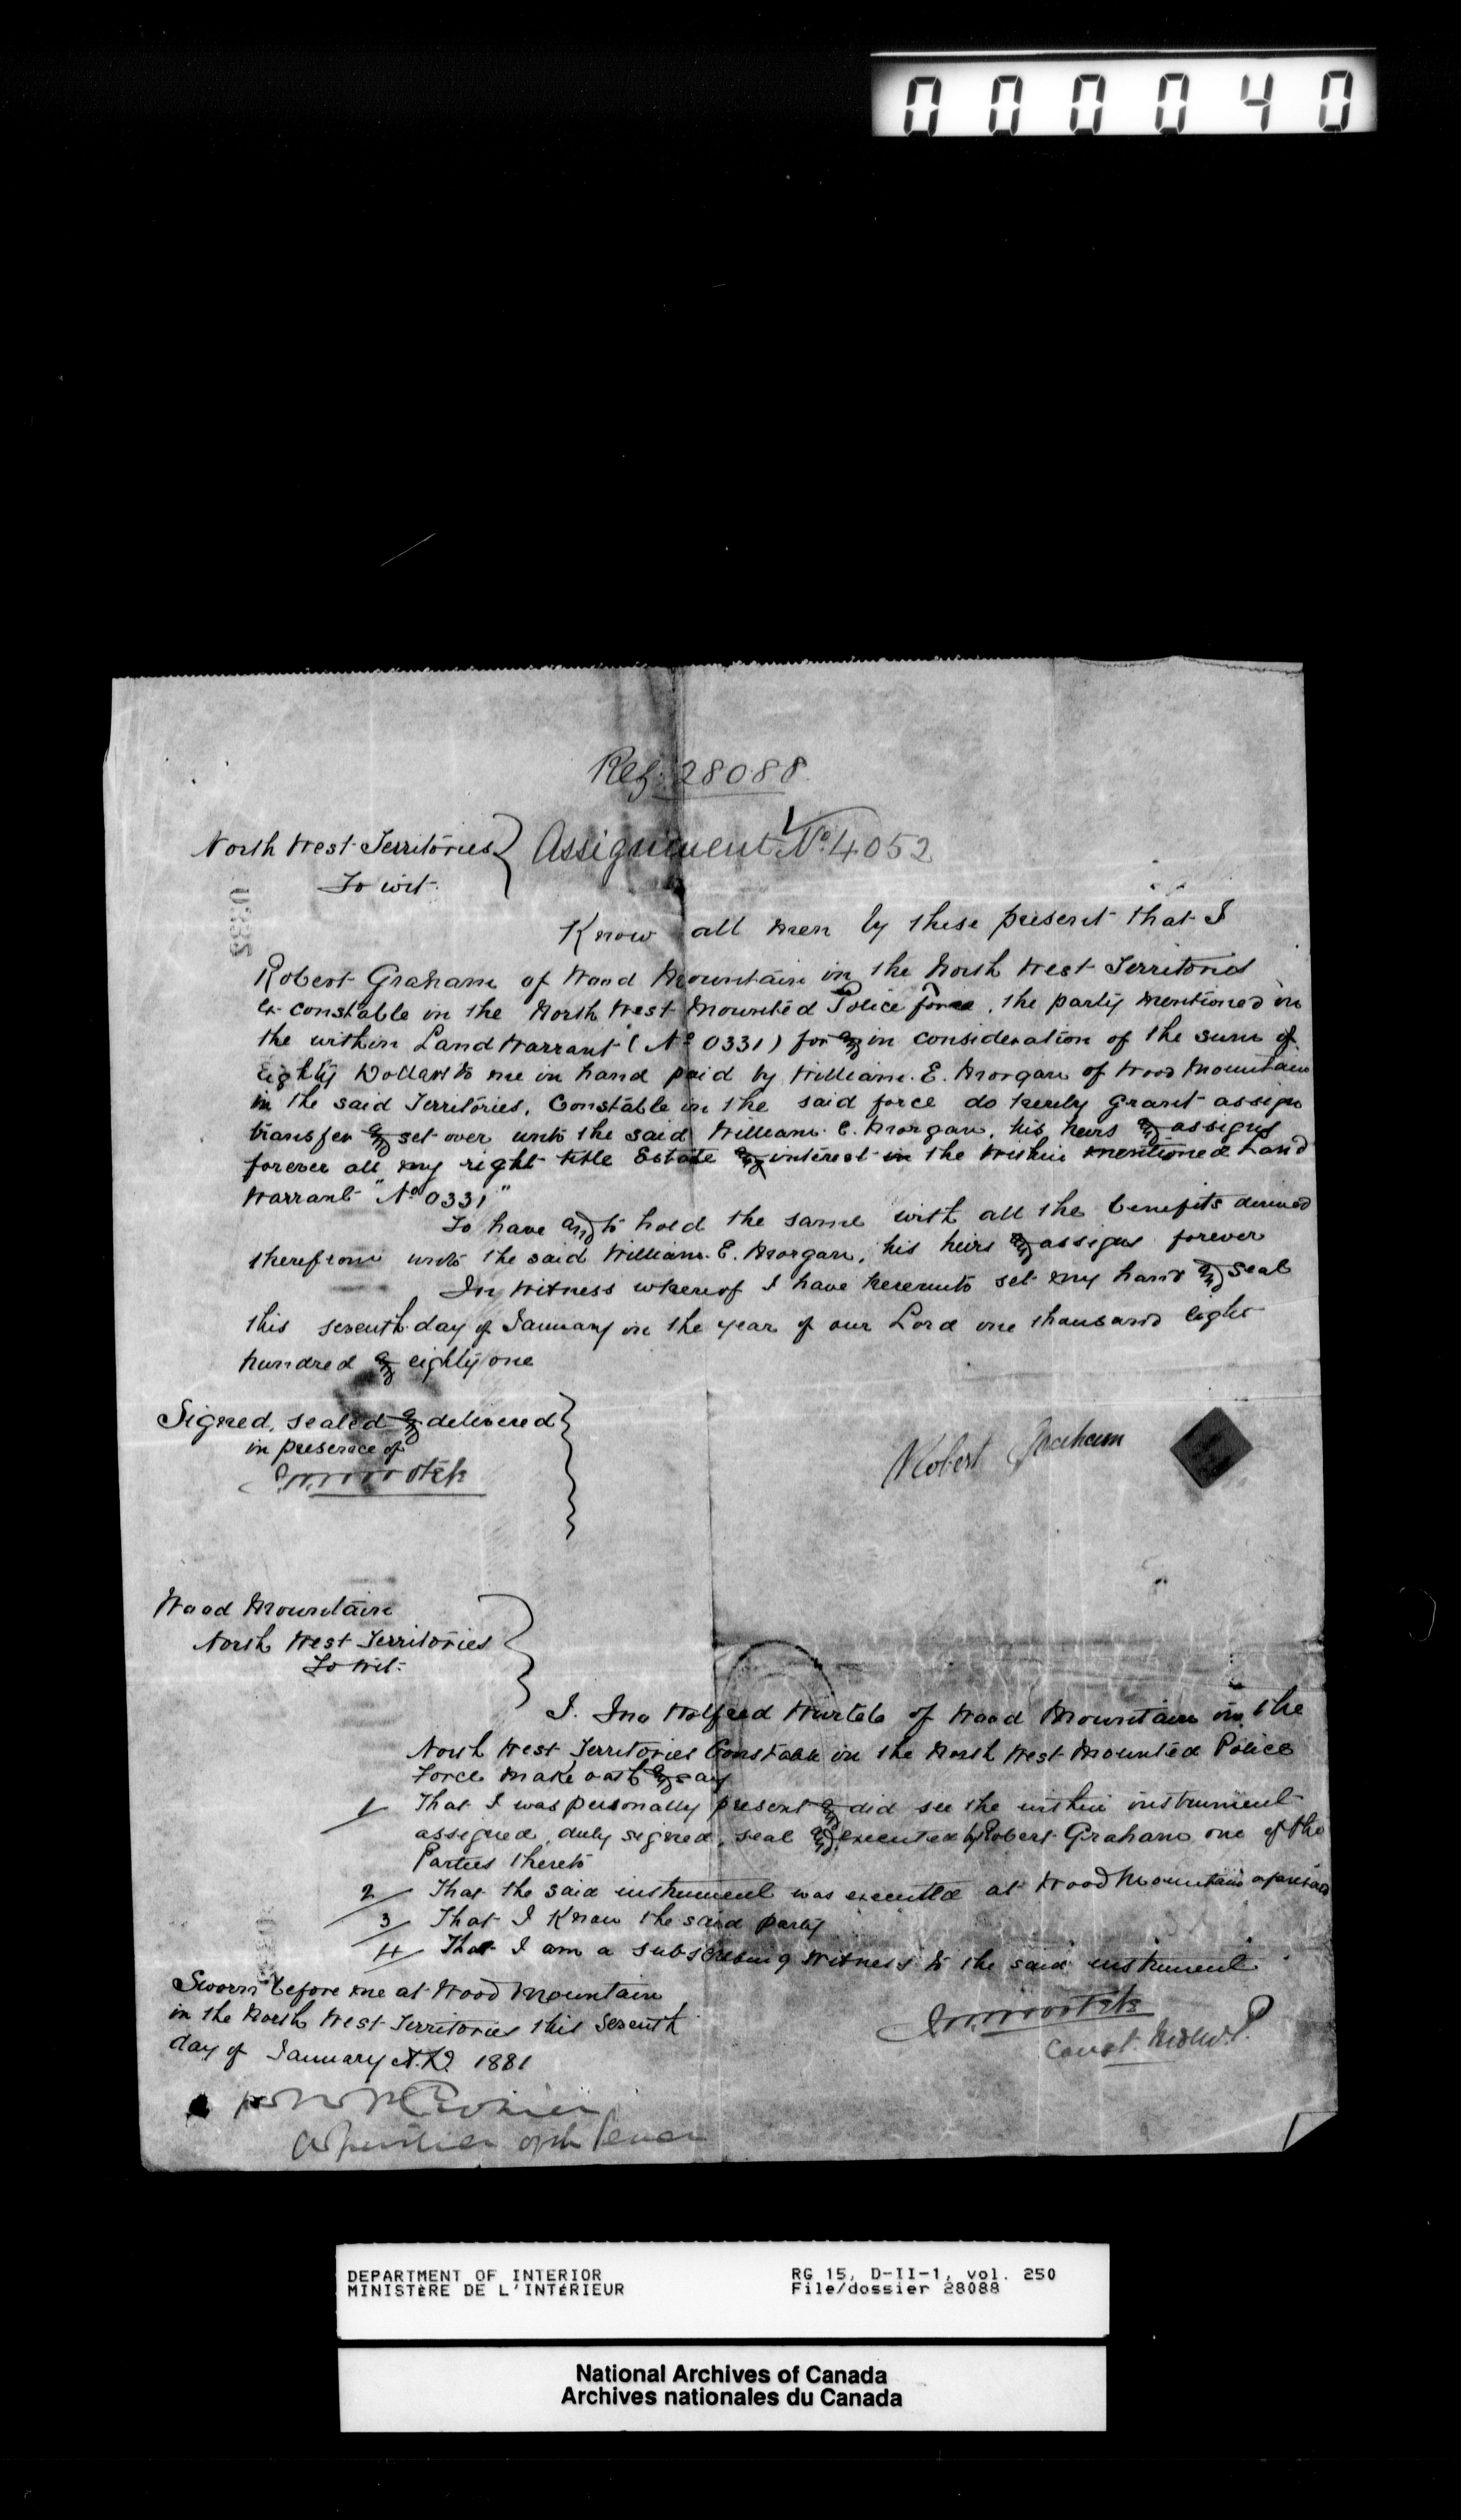 000040
Ref. 28088
North West Territories
To wit.
Assignment No. 4052
Know all men by these present that I
Robert Graham of Wood Mountain in the North West Territories
Ex constable in the North West Mounted Police force, the party mentioned in
the within Land Warrant (No 0331) for and in consideration of the sum of
Eighty Dollars to me in hand paid by William. E. Morgan of Wood Mountain
in the said Territories, Constable in the said force do hereby grant assign
transfer and set over unto the said William. E. Morgan, his heirs and assigns
forever all my right title Estate and interest in the within mentioned Land
Warrant "No 0331"
To have and to hold the same with all the benefits derived
therefrom unto the said William. E. Morgan, his heirs and assigns forever
In Witness whereof I have hereunto set my hand and Seal
this seventh day of January in the year of our Lord one thousand eight
hundred and eighty one
Signed, sealed and delivered
in presence of
Robert Graham
Wood Mountain
North West Territories
To Wit:
I. Jno Wolfred Wurtele of Wood Mountain in the
North West Territories Constable in the North West Mounted Police
Force make oath and say
1/ That I was personally present and did see the within instrument
assigned, duly signed, seal and executed by Robert Graham one of the
Parties thereto
2/ That the said instrument was executed at Wood Mountain aforesaid
3/ That I know the said party
4/ That I am a subscribing Witness to the said instrument
Sworn before me at Wood Mountain
in the North West Territories this Seventh
day of January A.D. 1881
Const. N.W.M.P.
DEPARTMENT OF INTERIOR
MINISTÈRE DE L'INTÉRIEUR
RG 15, D-II-1, vol. 250
File/dossier 28088
National Archives of Canada
Archives nationales du Canada